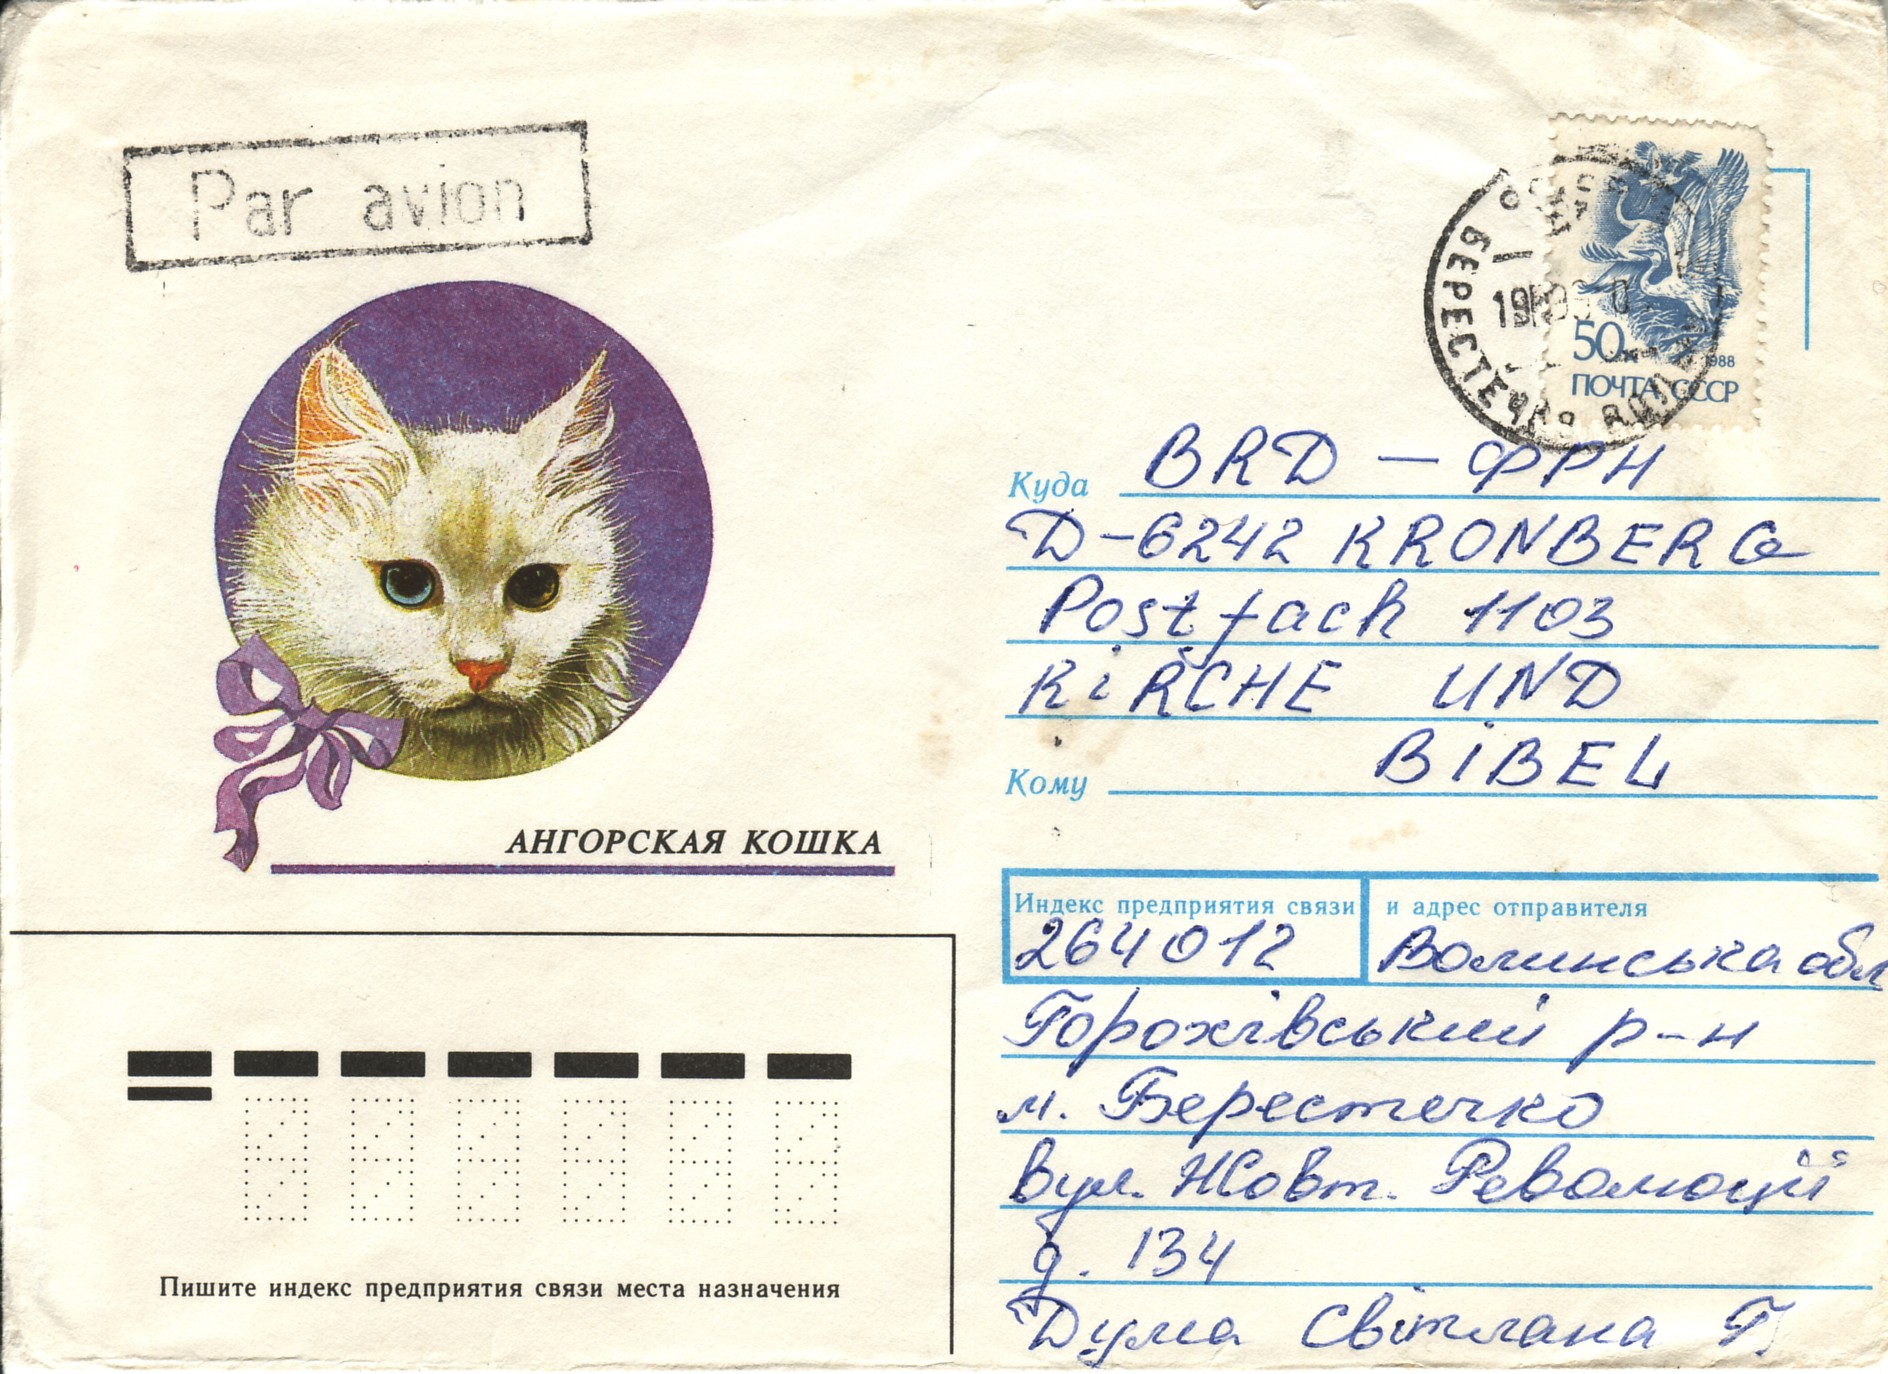 Par avion
БЕРЕСТЕЧКО
50к
1988
ПОЧТА СССР
Куда BRD — ФРН
D-6242 KRONBERG
Postfach 1103
KiRCHE UND
Кому BiBEL
АНГОРСКАЯ КОШКА
Индекс предприятия связи и адрес отправителя
264012 Волинська обл
Горохівський р-н
м. Берестечко
вул. Жовт. Революції
д. 134
Дума Світлана Г.
Пишите индекс предприятия связи места назначения